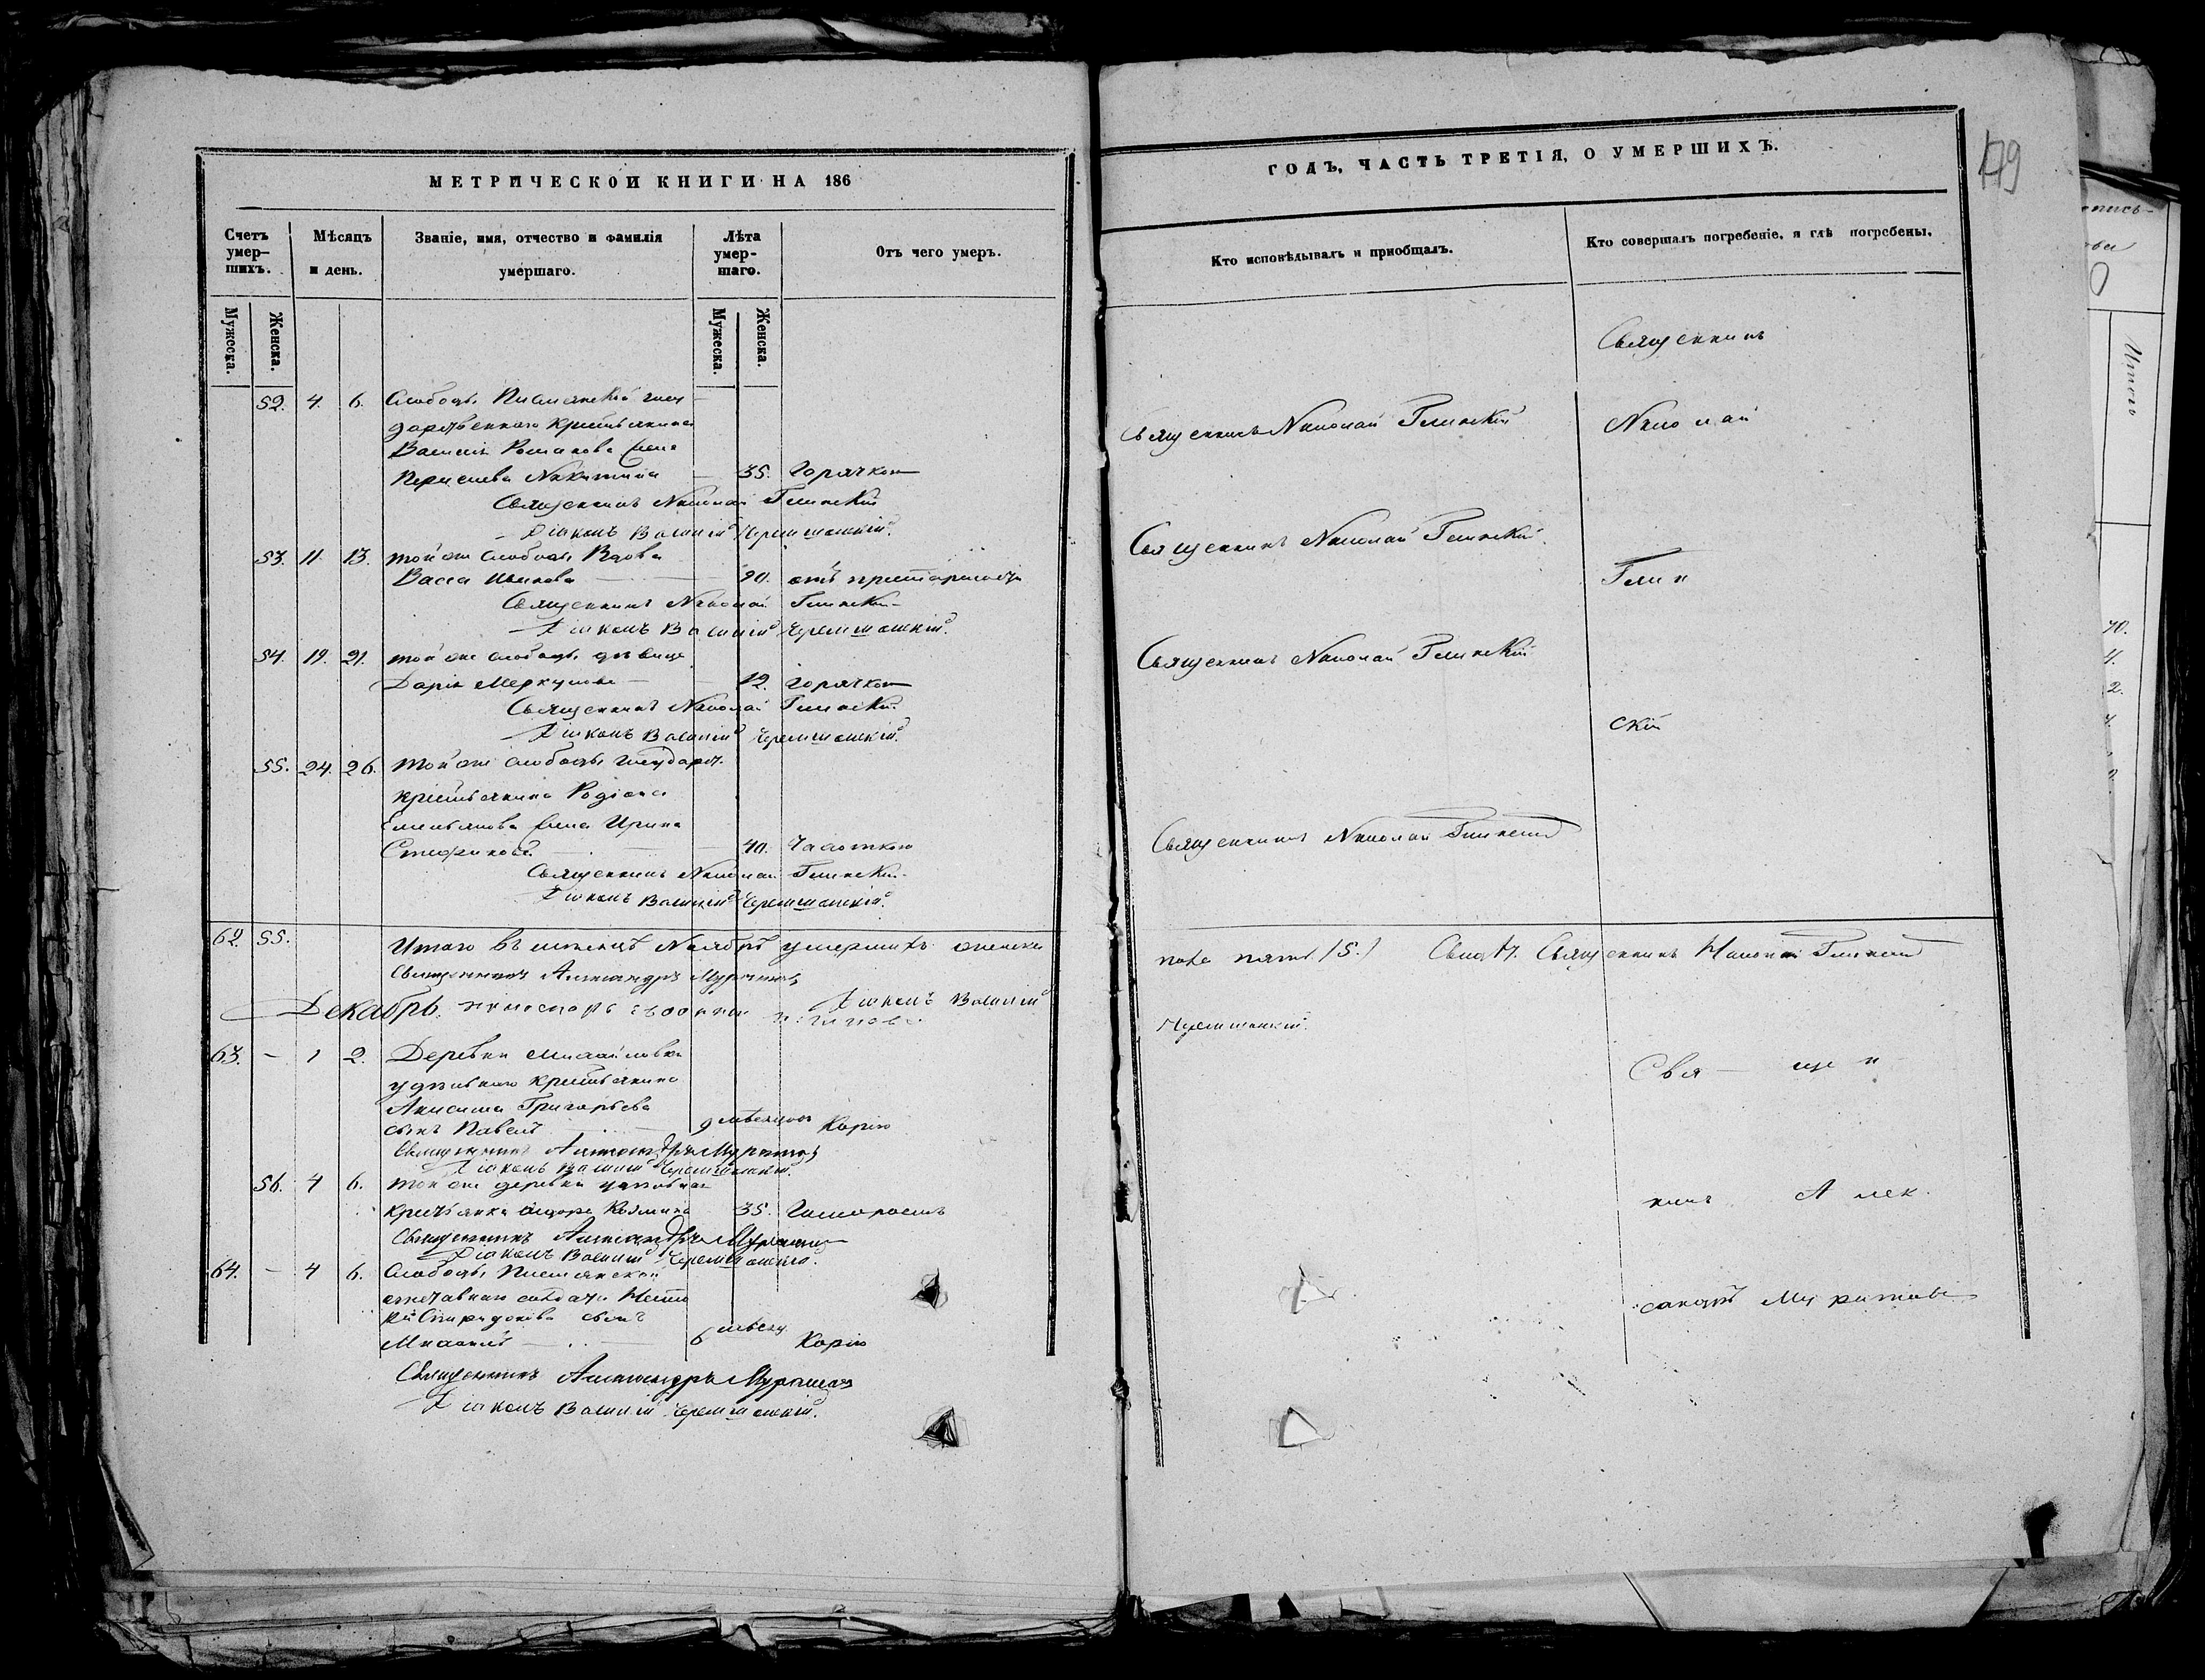 МЕТРИЧЕСКОЙ КНИГИ НА 186
Счетъ умер-шихъ.
Мѣсяцъ и день.
Званіе, имя, отчество и фамилія умершаго.
Лѣта умер-шаго.
Отъ чего умеръ.
Мужеска.
Женска.
Мужеска.
Женска.
52. 4. 6. Слободы
дарственнаго крестьянина
Василія Романова жена
Никитина — 35. Горячкою
Священникъ Николай Глинскій
Діаконъ Василій Черемшанскій.
53. 11. 13. той же слободы Вдова
Васса Иванова — 90. отъ престарѣлости
Священникъ Николай Глинскій
Діаконъ Василій Черемшанскій.
54. 19. 21. той же слободы дѣвица
Дарія Меркулова — 12. Горячкою
Священникъ Николай Глинскій
Діаконъ Василій Черемшанскій.
55. 24. 26. той же слободы государст.
крестьянина Родіона
Емельянова жена Ирина
40. Чахоткою
Священникъ Николай Глинскій
Діаконъ Василій Черемшанскій.
62. 55. Итого въ мѣсяцѣ Ноябрѣ умершихъ женска
Священникъ Александръ Муратовъ
Діаконъ Василій
Декабрь.
63. — 1 2. Деревни Михайловки
удѣльнаго крестьянина
Анисима Григорьева
сынъ Павелъ — 9 мѣсяцовъ Корію
Священникъ Александръ Муратовъ
Діаконъ Василій Черемшанскій.
56. 4 6. той же деревни удѣльная
Козмина 35.
Священникъ Александръ Муратовъ
Діаконъ Василій Черемшанскій.
64. — 4 6. Слободы
солдата
Спиридонова сынъ
Михаилъ — 6 мѣсяц. Корію
Священникъ Александръ Муратовъ
Діаконъ Василій Черемшанскій.
ГОДЪ, ЧАСТЬ ТРЕТІЯ, О УМЕРШИХЪ.
179
Кто исповѣдывалъ и пріобщалъ.
Кто совершалъ погребеніе, и гдѣ погребены.
Священникъ
Священникъ Николай Глинскій
Николай
Священникъ Николай Глинскій
Глин
Священникъ Николай Глинскій
скій
Священникъ Николай Глинскій
пола пять (5.) Священникъ Николай Глинскій
Черемшанскій.
Свя — щен
никъ Алек
сандръ Муратовъ
Итого